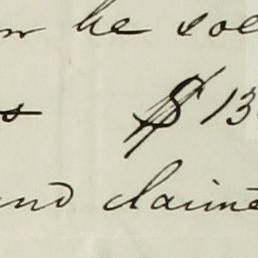 he sol
$ 13
and claime